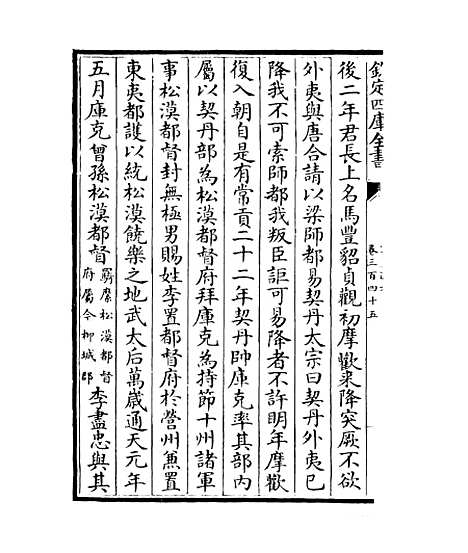 欽定四庫全書
卷三百四十五
後二年君長上名馬豐貂貞觀初摩歡來降突厥不欲
外夷與唐合請以梁師都易契丹太宗曰契丹外夷已
降我不可索師都我叛臣詎可易降者不許明年摩歡
復入朝自是有常貢二十二年契丹帥庫克率其部内
屬以契丹部為松漠都督府拜庫克為持節十州諸軍
事松漠都督封無極男賜姓李置都督府於營州兼置
東夷都護以統松漠饒樂之地武太后萬歲通天元年
五月庫克曾孫松漠都督羈縻松漠都督府屬今柳城郡李盡忠與其